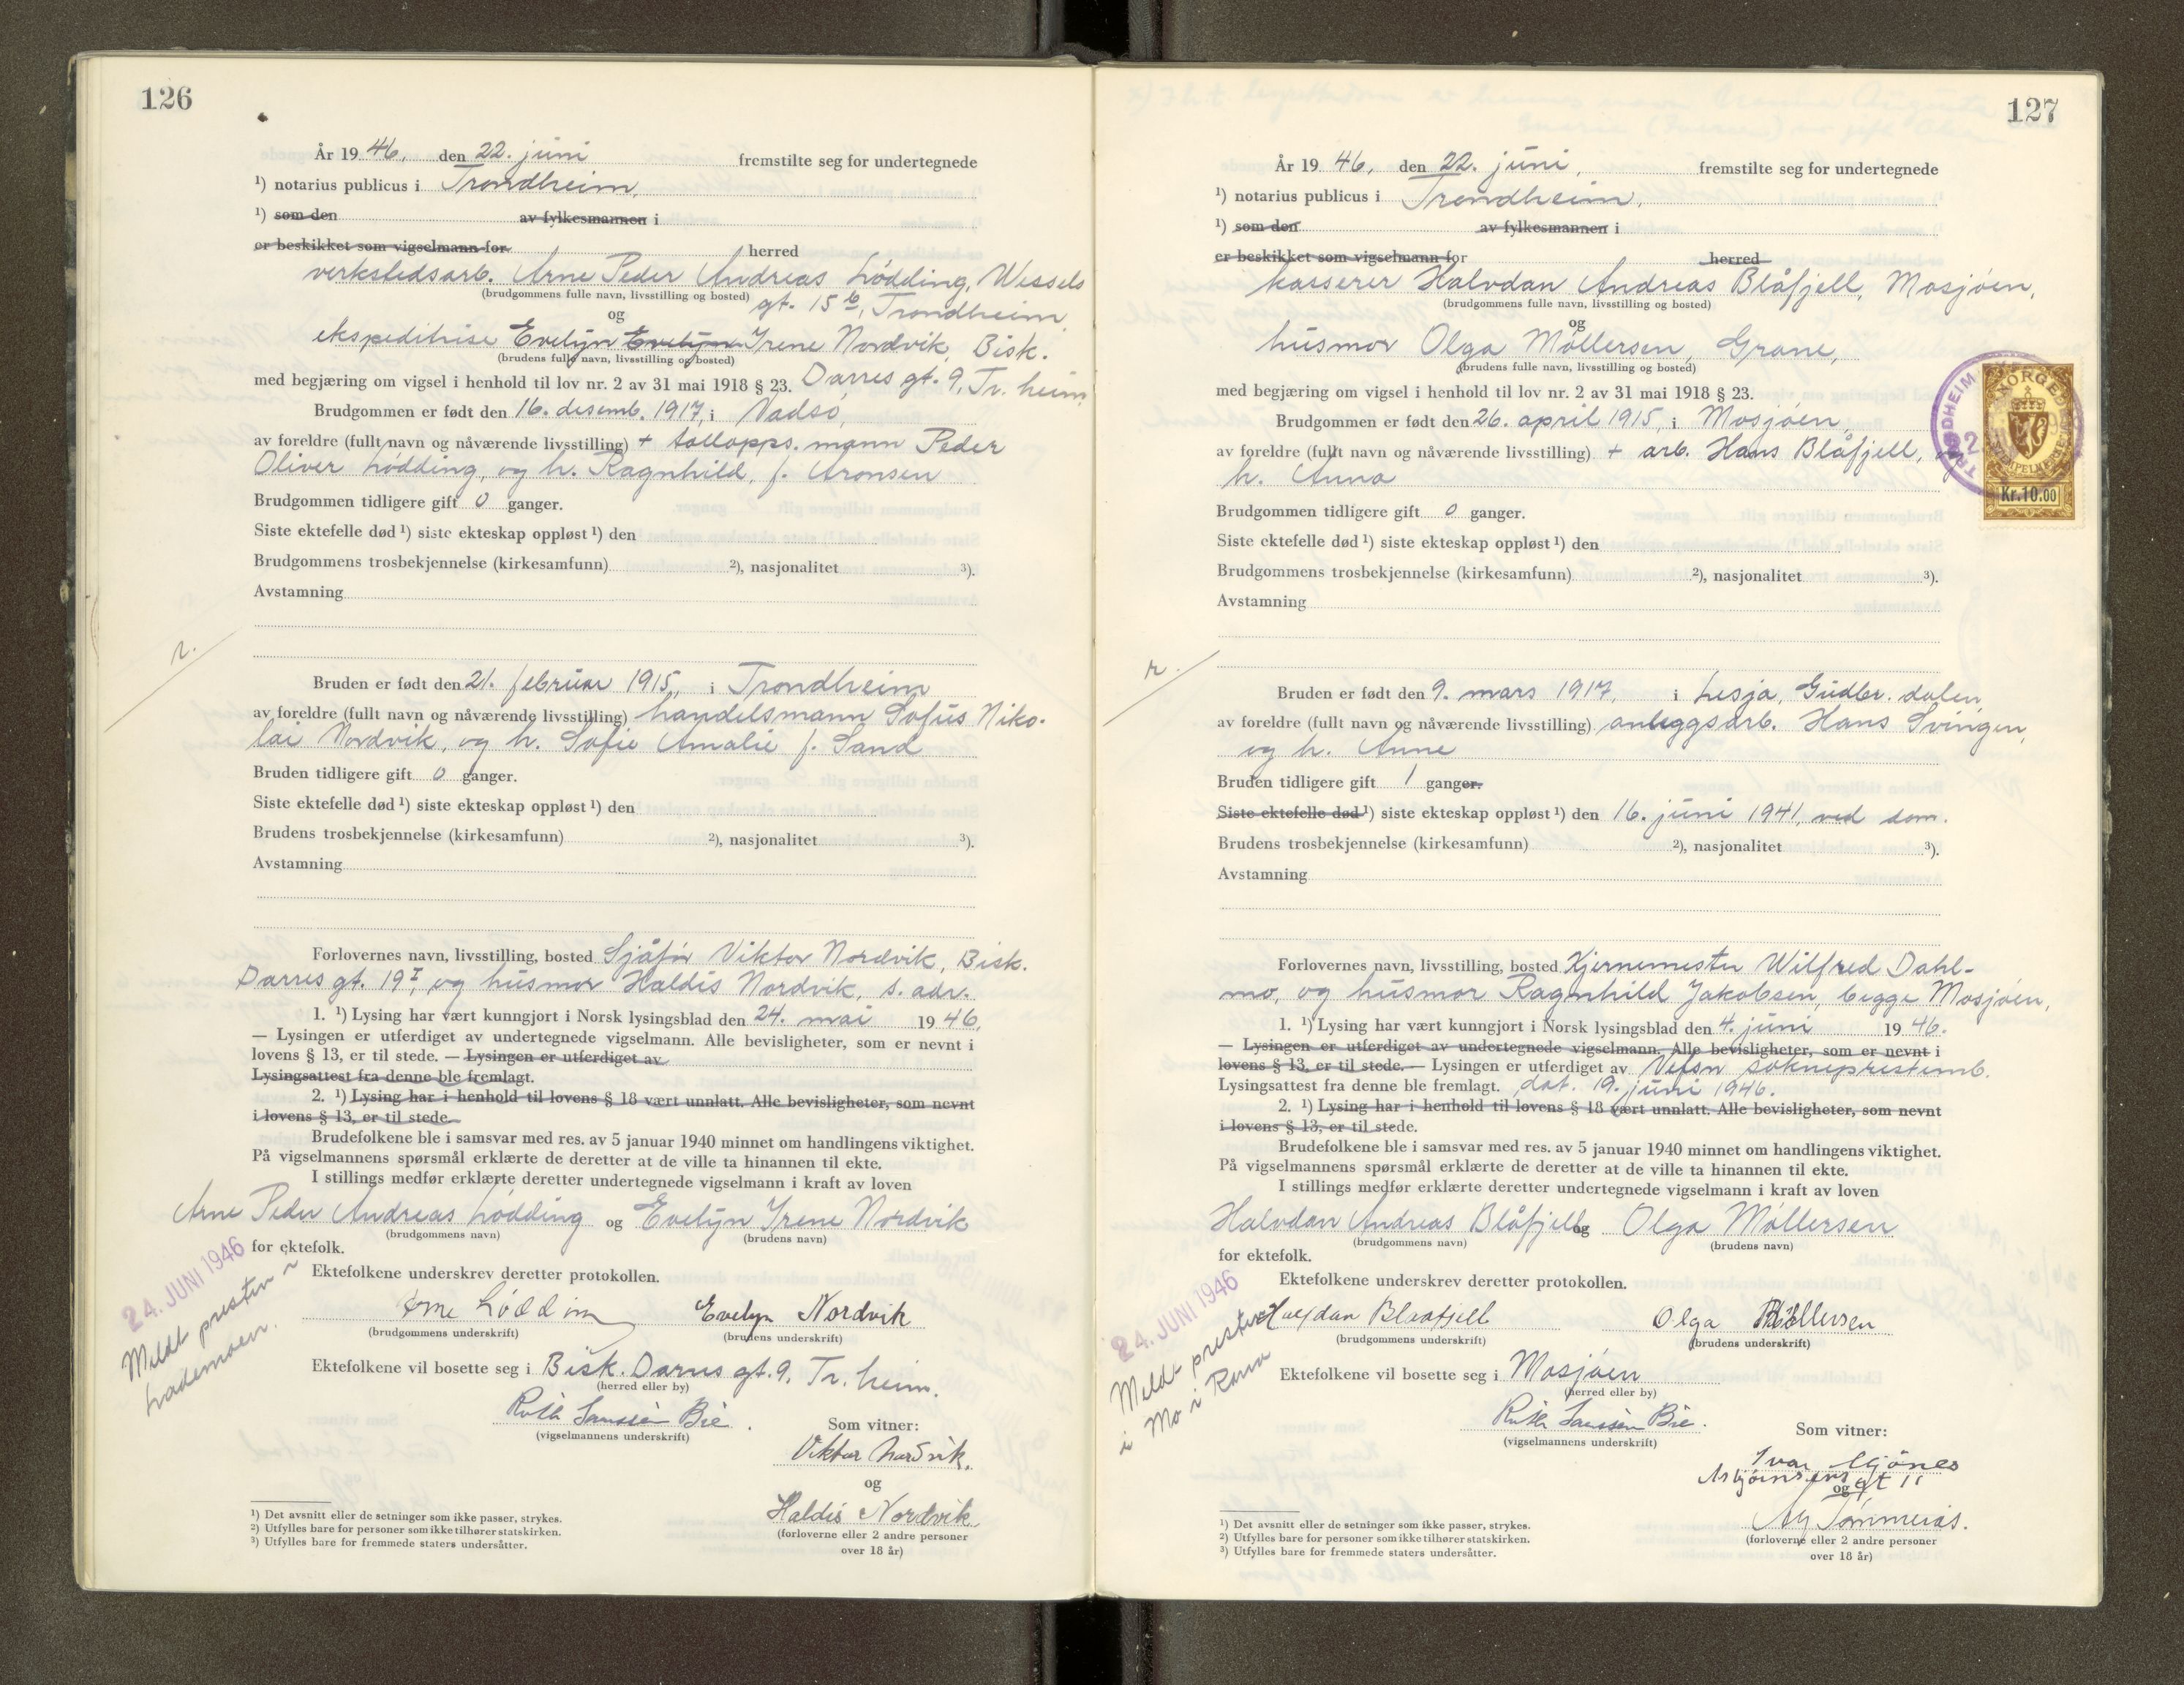 126
År 19 46, den 22. juni fremstilte seg for undertegnede
¹) notarius publicus i Trondheim.
¹) som den av fylkesmannen i
er beskikket som vigselmann for herred
verkstedsarb. Arne Peder Andreas Lödding, Wessels
(brudgommens fulle navn, livsstilling og bosted) gt. 15 b, Trondheim
og
ekspeditrise Evelyn Evelyn Irene Nordvik, Bisk.
(brudens fulle navn, livsstilling og bosted)
med begjæring om vigsel i henhold til lov nr. 2 av 31 mai 1918 § 23. Darres gt. 9, Tr. heim
Brudgommen er født den 16. desemb. 1917, i Vadsö,
av foreldre (fullt navn og nåværende livsstilling) + tollopps. mann Peder
Oliver Lödding, og h. Ragnhild, f. Aronsen
Brudgommen tidligere gift 0 ganger.
Siste ektefelle død ¹) siste ekteskap oppløst ¹) den
Brudgommens trosbekjennelse (kirkesamfunn) ²), nasjonalitet ³).
Avstamning
r.
Bruden er født den 21. februar 1915, i Trondheim
av foreldre (fullt navn og nåværende livsstilling) handelsmann Sofus Niko-
lai Nordvik, og h. Sofie Amalie f. Sand
Bruden tidligere gift 0 ganger.
Siste ektefelle død ¹) siste ekteskap oppløst ¹) den
Brudens trosbekjennelse (kirkesamfunn) ²), nasjonalitet ³).
Avstamning
Forlovernes navn, livsstilling, bosted Sjåför Viktor Nordvik, Bisk.
Darres gt. 19 I, og husmor Haldis Nordvik, s. adr.
1. ¹) Lysing har vært kunngjort i Norsk lysingsblad den 24. mai 19 46,
— Lysingen er utferdiget av undertegnede vigselmann. Alle bevisligheter, som er nevnt i
lovens § 13, er til stede. — Lysingen er utferdiget av
Lysingsattest fra denne ble fremlagt.
2. ¹) Lysing har i henhold til lovens § 18 vært unnlatt. Alle bevisligheter, som nevnt
i lovens § 13, er til stede.
Brudefolkene ble i samsvar med res. av 5 januar 1940 minnet om handlingens viktighet.
På vigselmannens spørsmål erklærte de deretter at de ville ta hinannen til ekte.
I stillings medfør erklærte deretter undertegnede vigselmann i kraft av loven
Arne Peder Andreas Lödding og Evelyn Irene Nordvik
(brudgommens navn) (brudens navn)
for ektefolk.
24. JUNI 1946
Meldt presten i
Lademoen.
Ektefolkene underskrev deretter protokollen.
Arne Lödding Evelyn Nordvik
(brudgommens underskrift) (brudens underskrift)
Ektefolkene vil bosette seg i Bisk. Darres gt. 9, Tr. heim.
(herred eller by)
Ruth Bie.
(vigselmannens underskrift)
Som vitner:
Viktor Nordvik.
og
Haldis Nordvik
(forloverne eller 2 andre personer
over 18 år)
¹) Det avsnitt eller de setninger som ikke passer, strykes.
²) Utfylles bare for personer som ikke tilhører statskirken.
³) Utfylles bare for fremmede staters undersåtter.
127
År 19 46, den 22. juni, fremstilte seg for undertegnede
¹) notarius publicus i Trondheim.
¹) som den av fylkesmannen i
er beskikket som vigselmann for herred
kasserer Halvdan Andreas Blåfjell, Mosjöen,
(brudgommens fulle navn, livsstilling og bosted)
og
husmor Olga Möllersen, Grane,
(brudens fulle navn, livsstilling og bosted)
med begjæring om vigsel i henhold til lov nr. 2 av 31 mai 1918 § 23.
TRONDHEIM
NORGE
STEMPELMERKE
Kr. 10.00
Brudgommen er født den 26. april 1915, i Mosjöen,
av foreldre (fullt navn og nåværende livsstilling) + arb. Hans Blåfjell, og
h. Anna
Brudgommen tidligere gift 0 ganger.
Siste ektefelle død ¹) siste ekteskap oppløst ¹) den
Brudgommens trosbekjennelse (kirkesamfunn) ²), nasjonalitet ³).
Avstamning
r.
Bruden er født den 9. mars 1917, i Lesja, Gudbr. dalen,
av foreldre (fullt navn og nåværende livsstilling) anleggsarb. Hans Svingen,
og h. Anne
Bruden tidligere gift 1 ganger.
Siste ektefelle død ¹) siste ekteskap oppløst ¹) den 16. juni 1941, ved dom.
Brudens trosbekjennelse (kirkesamfunn) ²), nasjonalitet ³).
Avstamning
Forlovernes navn, livsstilling, bosted Kjernemester Wilfred Dahl-
mo, og husmor Ragnhild Jakobsen, begge Mosjöen,
1. ¹) Lysing har vært kunngjort i Norsk lysingsblad den 4. juni 19 46.
— Lysingen er utferdiget av undertegnede vigselmann. Alle bevisligheter, som er nevnt i
lovens § 13, er til stede. — Lysingen er utferdiget av Vefsn sokneprestemb.
Lysingsattest fra denne ble fremlagt. dat. 19. juni 1946.
2. ¹) Lysing har i henhold til lovens § 18 vært unnlatt. Alle bevisligheter, som nevnt
i lovens § 13, er til stede.
Brudefolkene ble i samsvar med res. av 5 januar 1940 minnet om handlingens viktighet.
På vigselmannens spørsmål erklærte de deretter at de ville ta hinannen til ekte.
I stillings medfør erklærte deretter undertegnede vigselmann i kraft av loven
Halvdan Andreas Blåfjell og Olga Möllersen
(brudgommens navn) (brudens navn)
for ektefolk.
24. JUNI 1946
Meldt presten
i Mo i Rana
Ektefolkene underskrev deretter protokollen.
Halfdan Blaafjell Olga Möllersen
(brudgommens underskrift) (brudens underskrift)
Ektefolkene vil bosette seg i Mosjöen
(herred eller by)
Ruth Bie.
(vigselmannens underskrift)
Som vitner:
Ivar
Asbjörnsens gt 11
og
(forloverne eller 2 andre personer
over 18 år)
¹) Det avsnitt eller de setninger som ikke passer, strykes.
²) Utfylles bare for personer som ikke tilhører statskirken.
³) Utfylles bare for fremmede staters undersåtter.